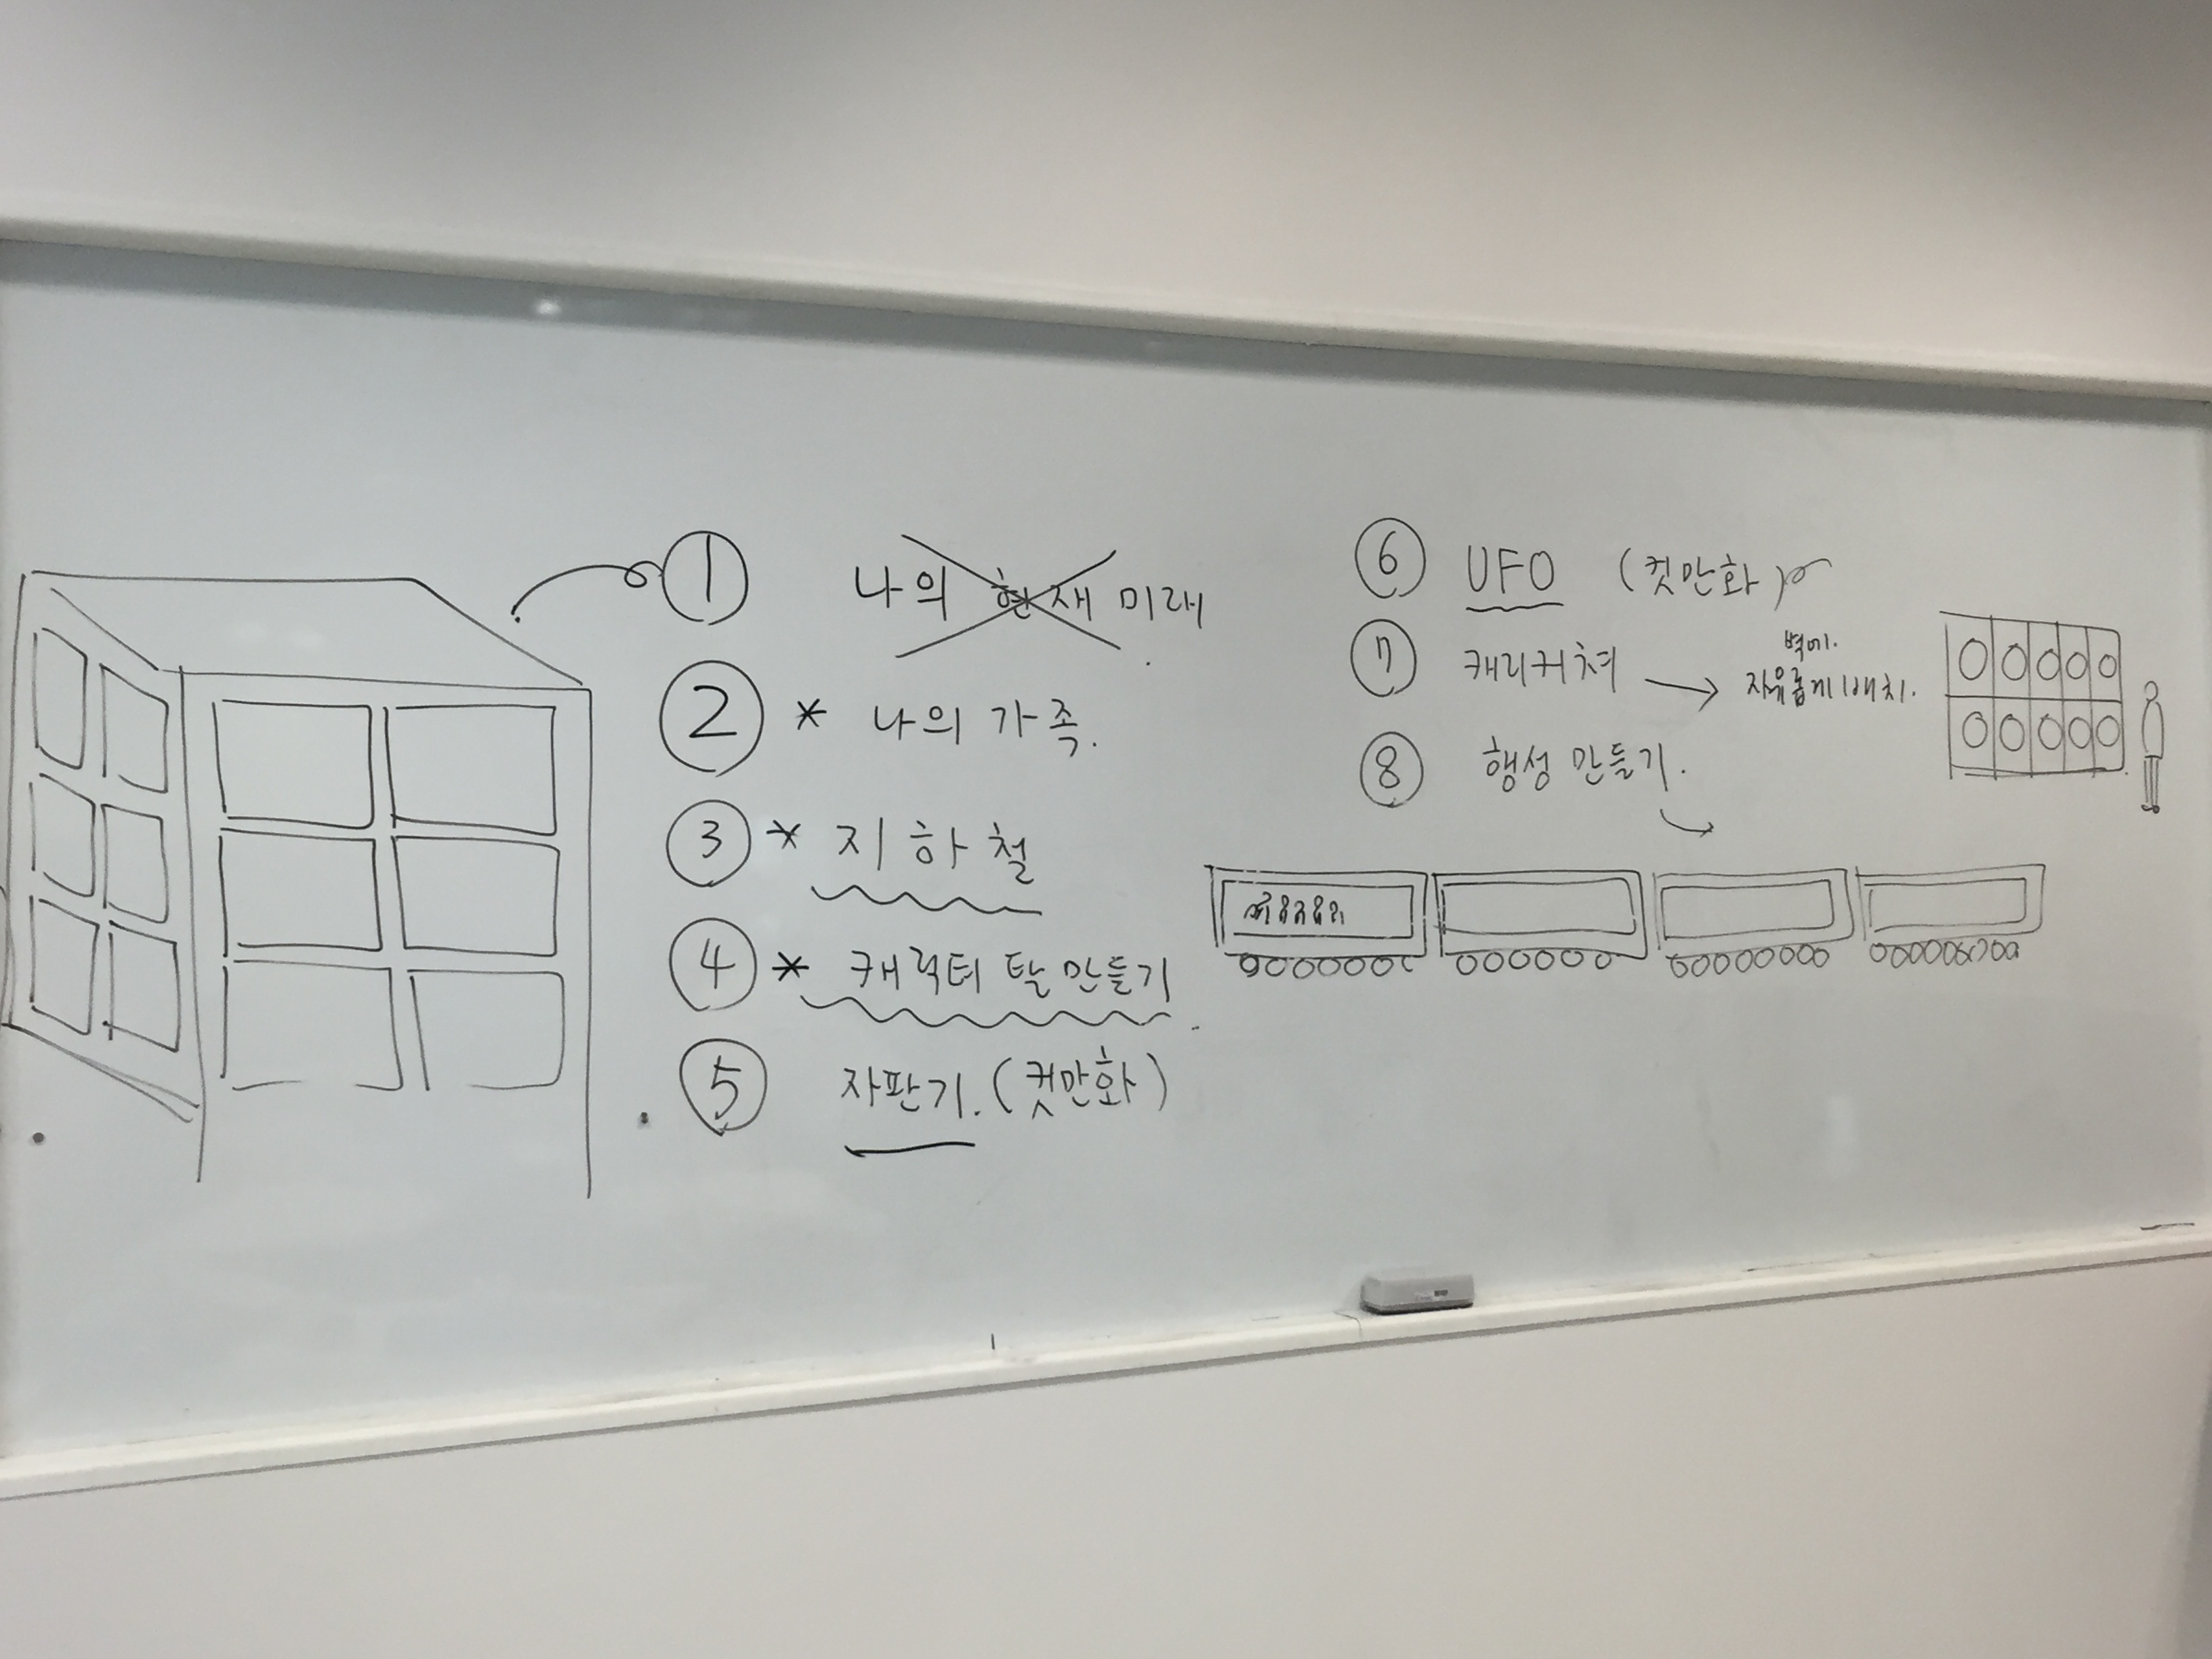 ① 나의 현재 미래
② * 나의 가족.
③ * 지하철
④ * 캐릭터 탈 만들기
⑤ 자판기. (컷만화)
⑥ UFO (컷만화)
⑦ 캐리커쳐 →
벽에.
자유롭게 배치.
⑧ 행성 만들기.